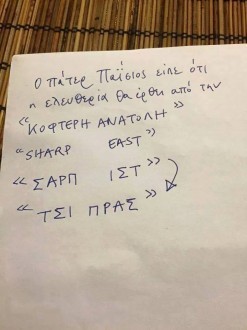 Ο πάτερ Παΐσιος είπε ότι
η ελευθερία θα έρθει από την
«ΚΟΦΤΕΡΗ ΑΝΑΤΟΛΗ»
«SHARP EAST»
«ΣΑΡΠ ΙΣΤ»
«ΤΣΙ ΠΡΑΣ»